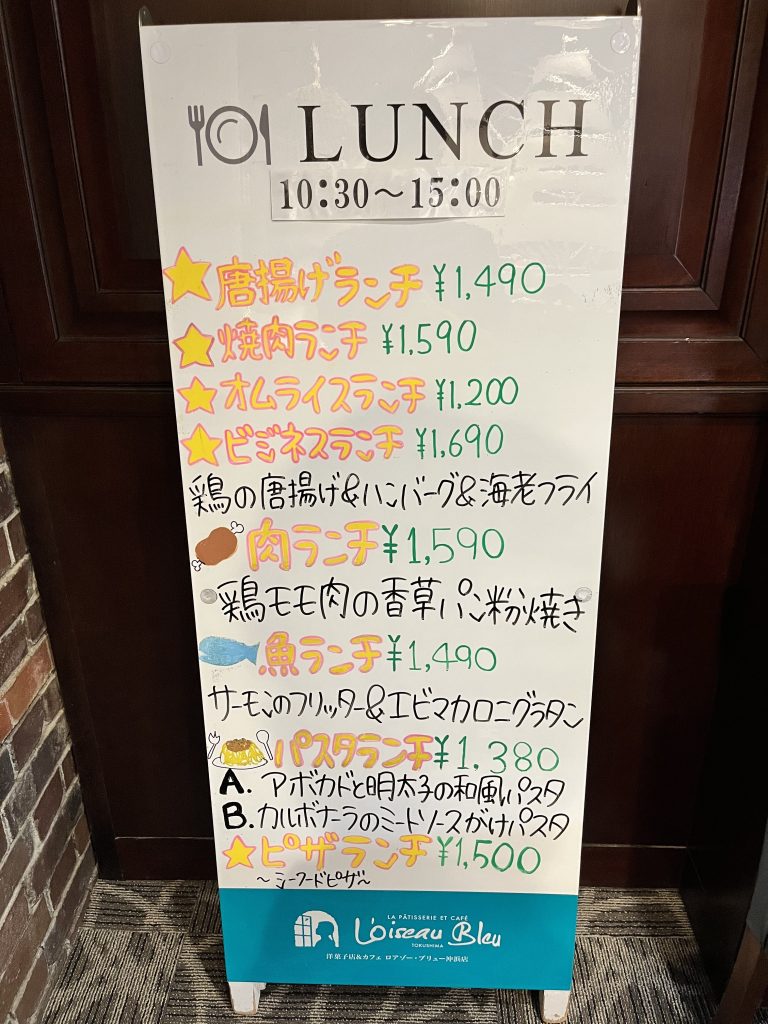 LUNCH
10:30～15:00
唐揚げランチ ¥1,490
焼肉ランチ ¥1,590
オムライスランチ ¥1,200
ビジネスランチ ¥1,690
鶏の唐揚げ&ハンバーグ&海老フライ
肉ランチ ¥1,590
鶏モモ肉の香草パン粉焼き
魚ランチ ¥1,490
サーモンのフリッター&エビマカロニグラタン
パスタランチ ¥1.380
A. アボカドと明太子の和風パスタ
B. カルボナーラのミートソースがけパスタ
ピザランチ ¥1,500
～シーフードピザ～
LA PÂTISSERIE ET CAFÉ
L'oiseau Bleu
TOKUSHIMA
洋菓子店&カフェ ロアゾー・ブリュー沖浜店